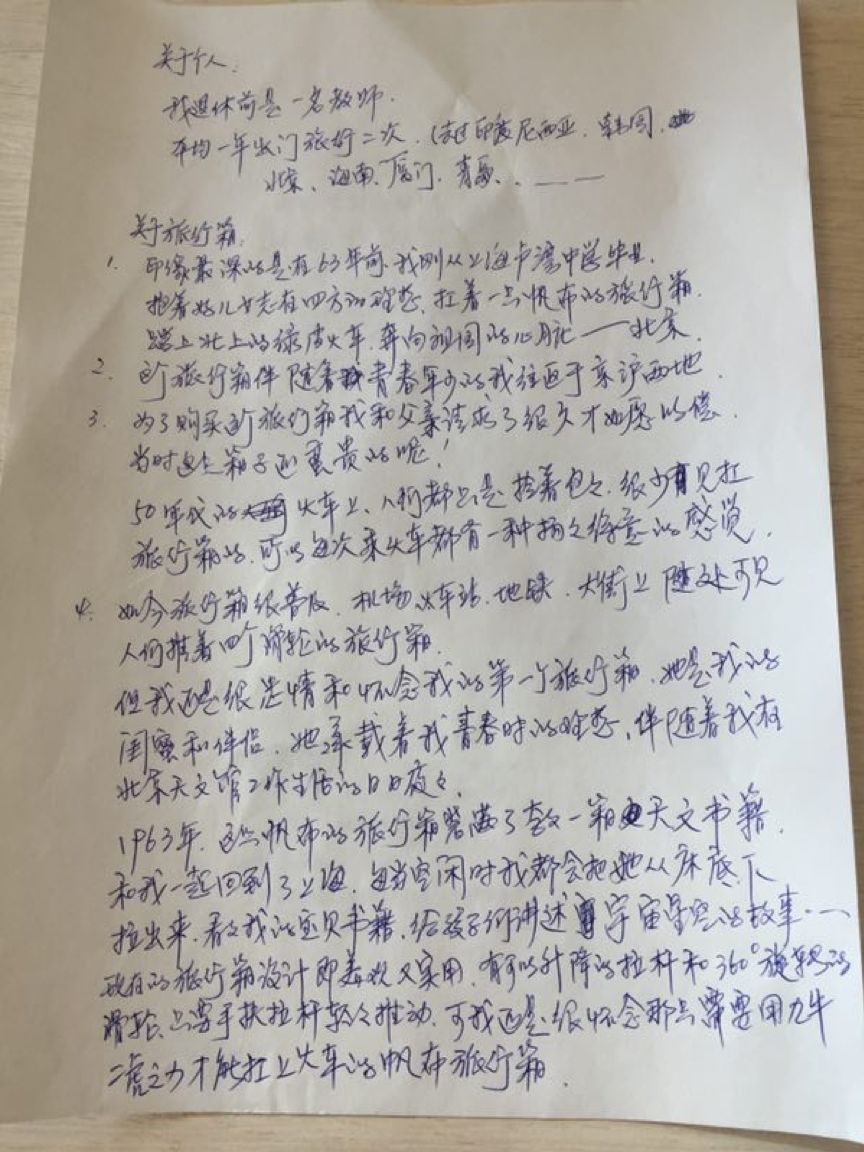 关于个人：
我退休前是一名教师．
平均一年出门旅行二次．（去过印度尼西亚．韩国．
北京、海南、厦门、青岛、．— —
关于旅行箱．
1. 印象最深的是在63年前．我刚从上海卢湾中学毕业．
抱着好儿女志在四方的理想．扛着一只帆布的旅行箱．
踏上北上的绿皮火车．奔向祖国的心脏——北京．
2. 这个旅行箱伴随着青春年少的我往返于京沪两地．
3. 为了购买这个旅行箱我和父亲请求了很久才如愿以偿．
当时这只箱子还蛮贵的呢！
50年代的火车上．人们都只是拎着包包．很少有见扛
旅行箱的．所以每次乘火车都有一种扬々得意的感觉．
4. 如今旅行箱很普及．机场．火车站．地铁．大街上随处可见
人们推着四个滑轮的旅行箱．
但我还是很是情和怀念我的第一个旅行箱．她是我的
闺蜜和伴侣．她承载着我青春时的理想．伴随着我在
北京天文馆工作生活的日日夜々．
1963年．这只帆布的旅行箱装满了整々一箱天文书籍．
和我一起回到了上海．每当空闲时我都会把她从床底下
拉出来．看々我的宝贝书籍．给孩子们讲述宇宙星空的故事．—
现在的旅行箱设计即美观又实用．有可以升降的拉杆和360°旋转的
滑轮．只要手扶拉杆轻々推动．可我还是很怀念那只需要用九牛
二虎之力才能扛上火车的帆布旅行箱．